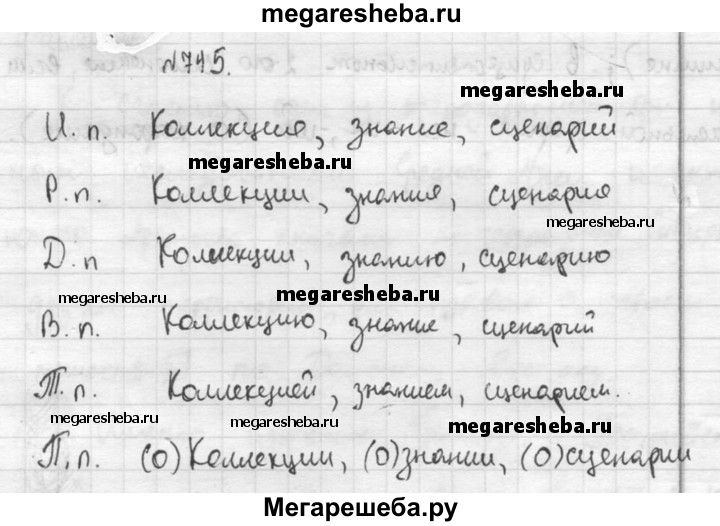 megaresheba.ru
№745.
megaresheba.ru
И.п. Коллекция, знание, сценарий
megaresheba.ru
Р.п. Коллекции, знания, сценария
megaresheba.ru
Д.п Коллекции, знанию, сценарию
megaresheba.ru megaresheba.ru
В.п. Коллекцию, знание, сценарий
Т.п. Коллекцией, знанием, сценарием.
megaresheba.ru megaresheba.ru megaresheba.ru
П.п. (О) Коллекции, (О) знании, (О) сценарии
Мегарешеба.ру